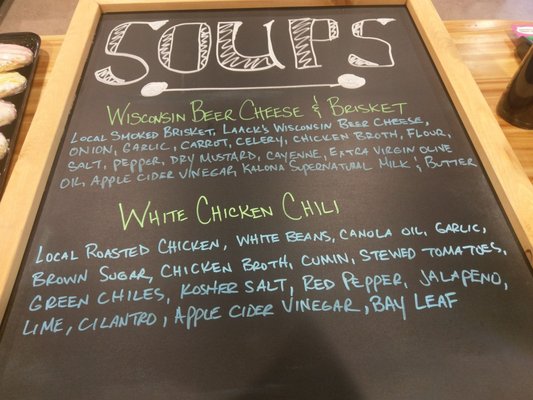 SOUPS
WISCONSIN BEER CHEESE & BRISKET
LOCAL SMOKED BRISKET, LAACK'S WISCONSIN BEER CHEESE,
ONION, GARLIC, CARROT, CELERY, CHICKEN BROTH, FLOUR,
SALT, PEPPER, DRY MUSTARD, CAYENNE, EXTRA VIRGIN OLIVE
OIL, APPLE CIDER VINEGAR, KALONA SUPERNATURAL MILK & BUTTER
WHITE CHICKEN CHILI
LOCAL ROASTED CHICKEN, WHITE BEANS, CANOLA OIL, GARLIC,
BROWN SUGAR, CHICKEN BROTH, CUMIN, STEWED TOMATOES,
GREEN CHILES, KOSHER SALT, RED PEPPER, JALAPENO,
LIME, CILANTRO, APPLE CIDER VINEGAR, BAY LEAF